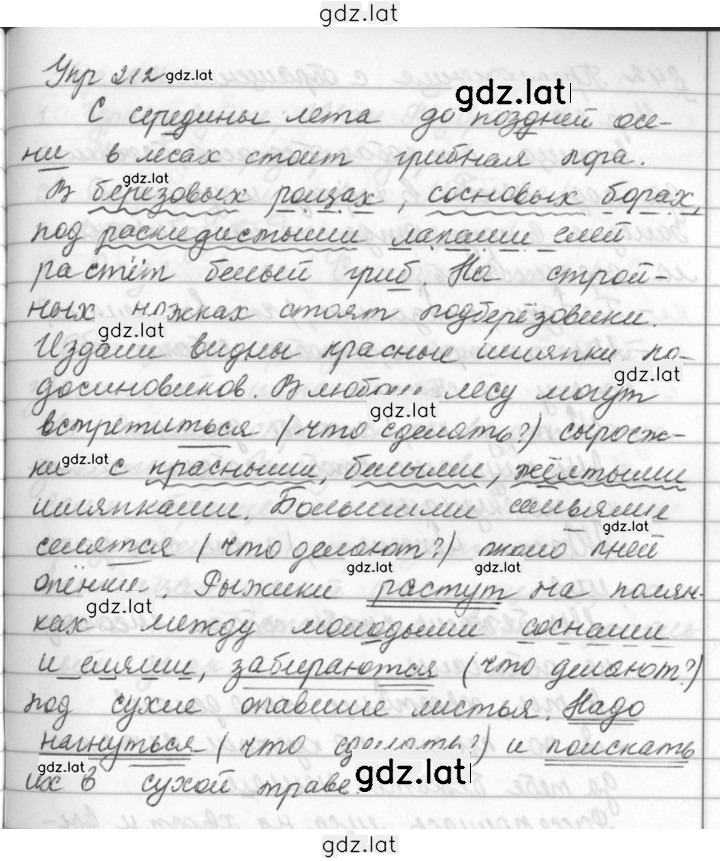 gdz.lat
Упр 212 gdz.lat
gdz.lat
С середины лета до поздней осе-
ни в лесах стоит грибная пора.
gdz.lat
В берёзовых рощах, сосновых борах,
под раскидистыми лапами елей
растёт белый гриб. На строй-
ных ножках стоят подберёзовики.
gdz.lat
Издали видны красные шляпки по-
gdz.lat
досиновиков. В любом лесу могут
gdz.lat
встретиться (что сделать?) сыроеж-
ки gdz.lat с красными, белыми, жёлтыми
шляпками. Большими семьями
gdz.lat
селятся (что делают?) около пней
gdz.lat gdz.lat
опёнки. Рыжики растут на полян-
gdz.lat
ках между молодыми соснами
и елями, забираются (что делают?)
под сухие опавшие листья. Надо
нагнуться (что сделать?) и поискать
gdz.lat gdz.lat
их в сухой траве.
gdz.lat